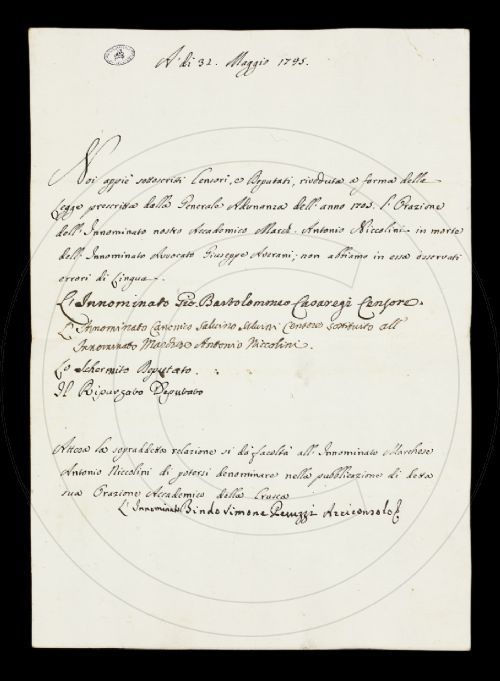 A' di 31. Maggio 1745.
Noi appiè sottoscritti Censori, e Deputati, riveduta a forma della
Legge prescritta dalla Generale Adunanza dell' anno 1705. l' Orazione
dell' Innominato nostro Accademico March. Antonio Niccolini in morte
dell' Innominato Avvocato Giuseppe Averani; non abbiamo in essa osservati
errori di Lingua.
L' Innominato Gio. Bartolommeo Casaregi Censore.
L' Innominato Canonico Salvino Salvini Censore sostituto all'
Innominato Marchese Antonio Niccolini.
Lo Schermito Deputato.
Il Ripurgato Deputato
Attesa la sopraddetta relazione si dà facoltà all' Innominato Marchese
Antonio Niccolini di potersi denominare nella pubblicazione di detta
sua Orazione Accademico della Crusca
L' Innominato Bindo Simone Peruzzi Arciconsolo